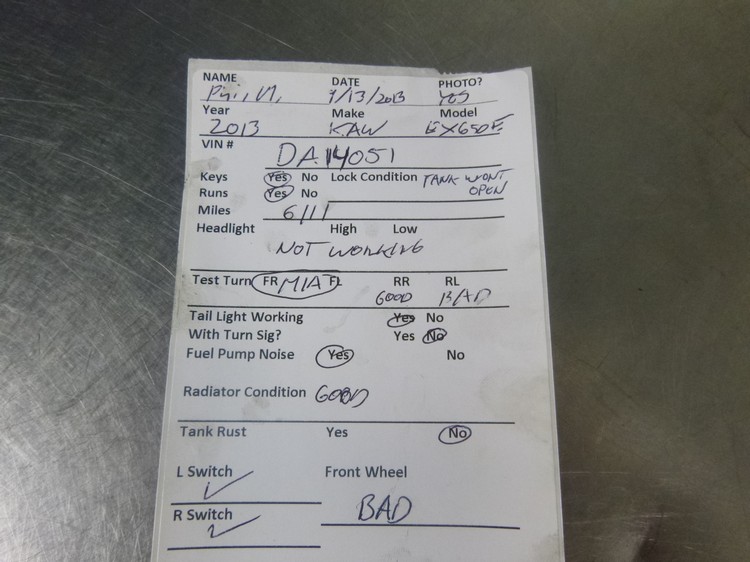 NAME DATE PHOTO?
9/13/2013 YES
Year Make Model
2013 KAW EX650F
VIN # DA14051
Keys Yes No Lock Condition TANK WONT OPEN
Runs Yes No
Miles 6111
Headlight High Low
NOT WORKING
Test Turn FR MIA FL RR RL
GOOD BAD
Tail Light Working Yes No
With Turn Sig? Yes No
Fuel Pump Noise Yes No
Radiator Condition GOOD
Tank Rust Yes No
L Switch Front Wheel
1
R Switch BAD
2